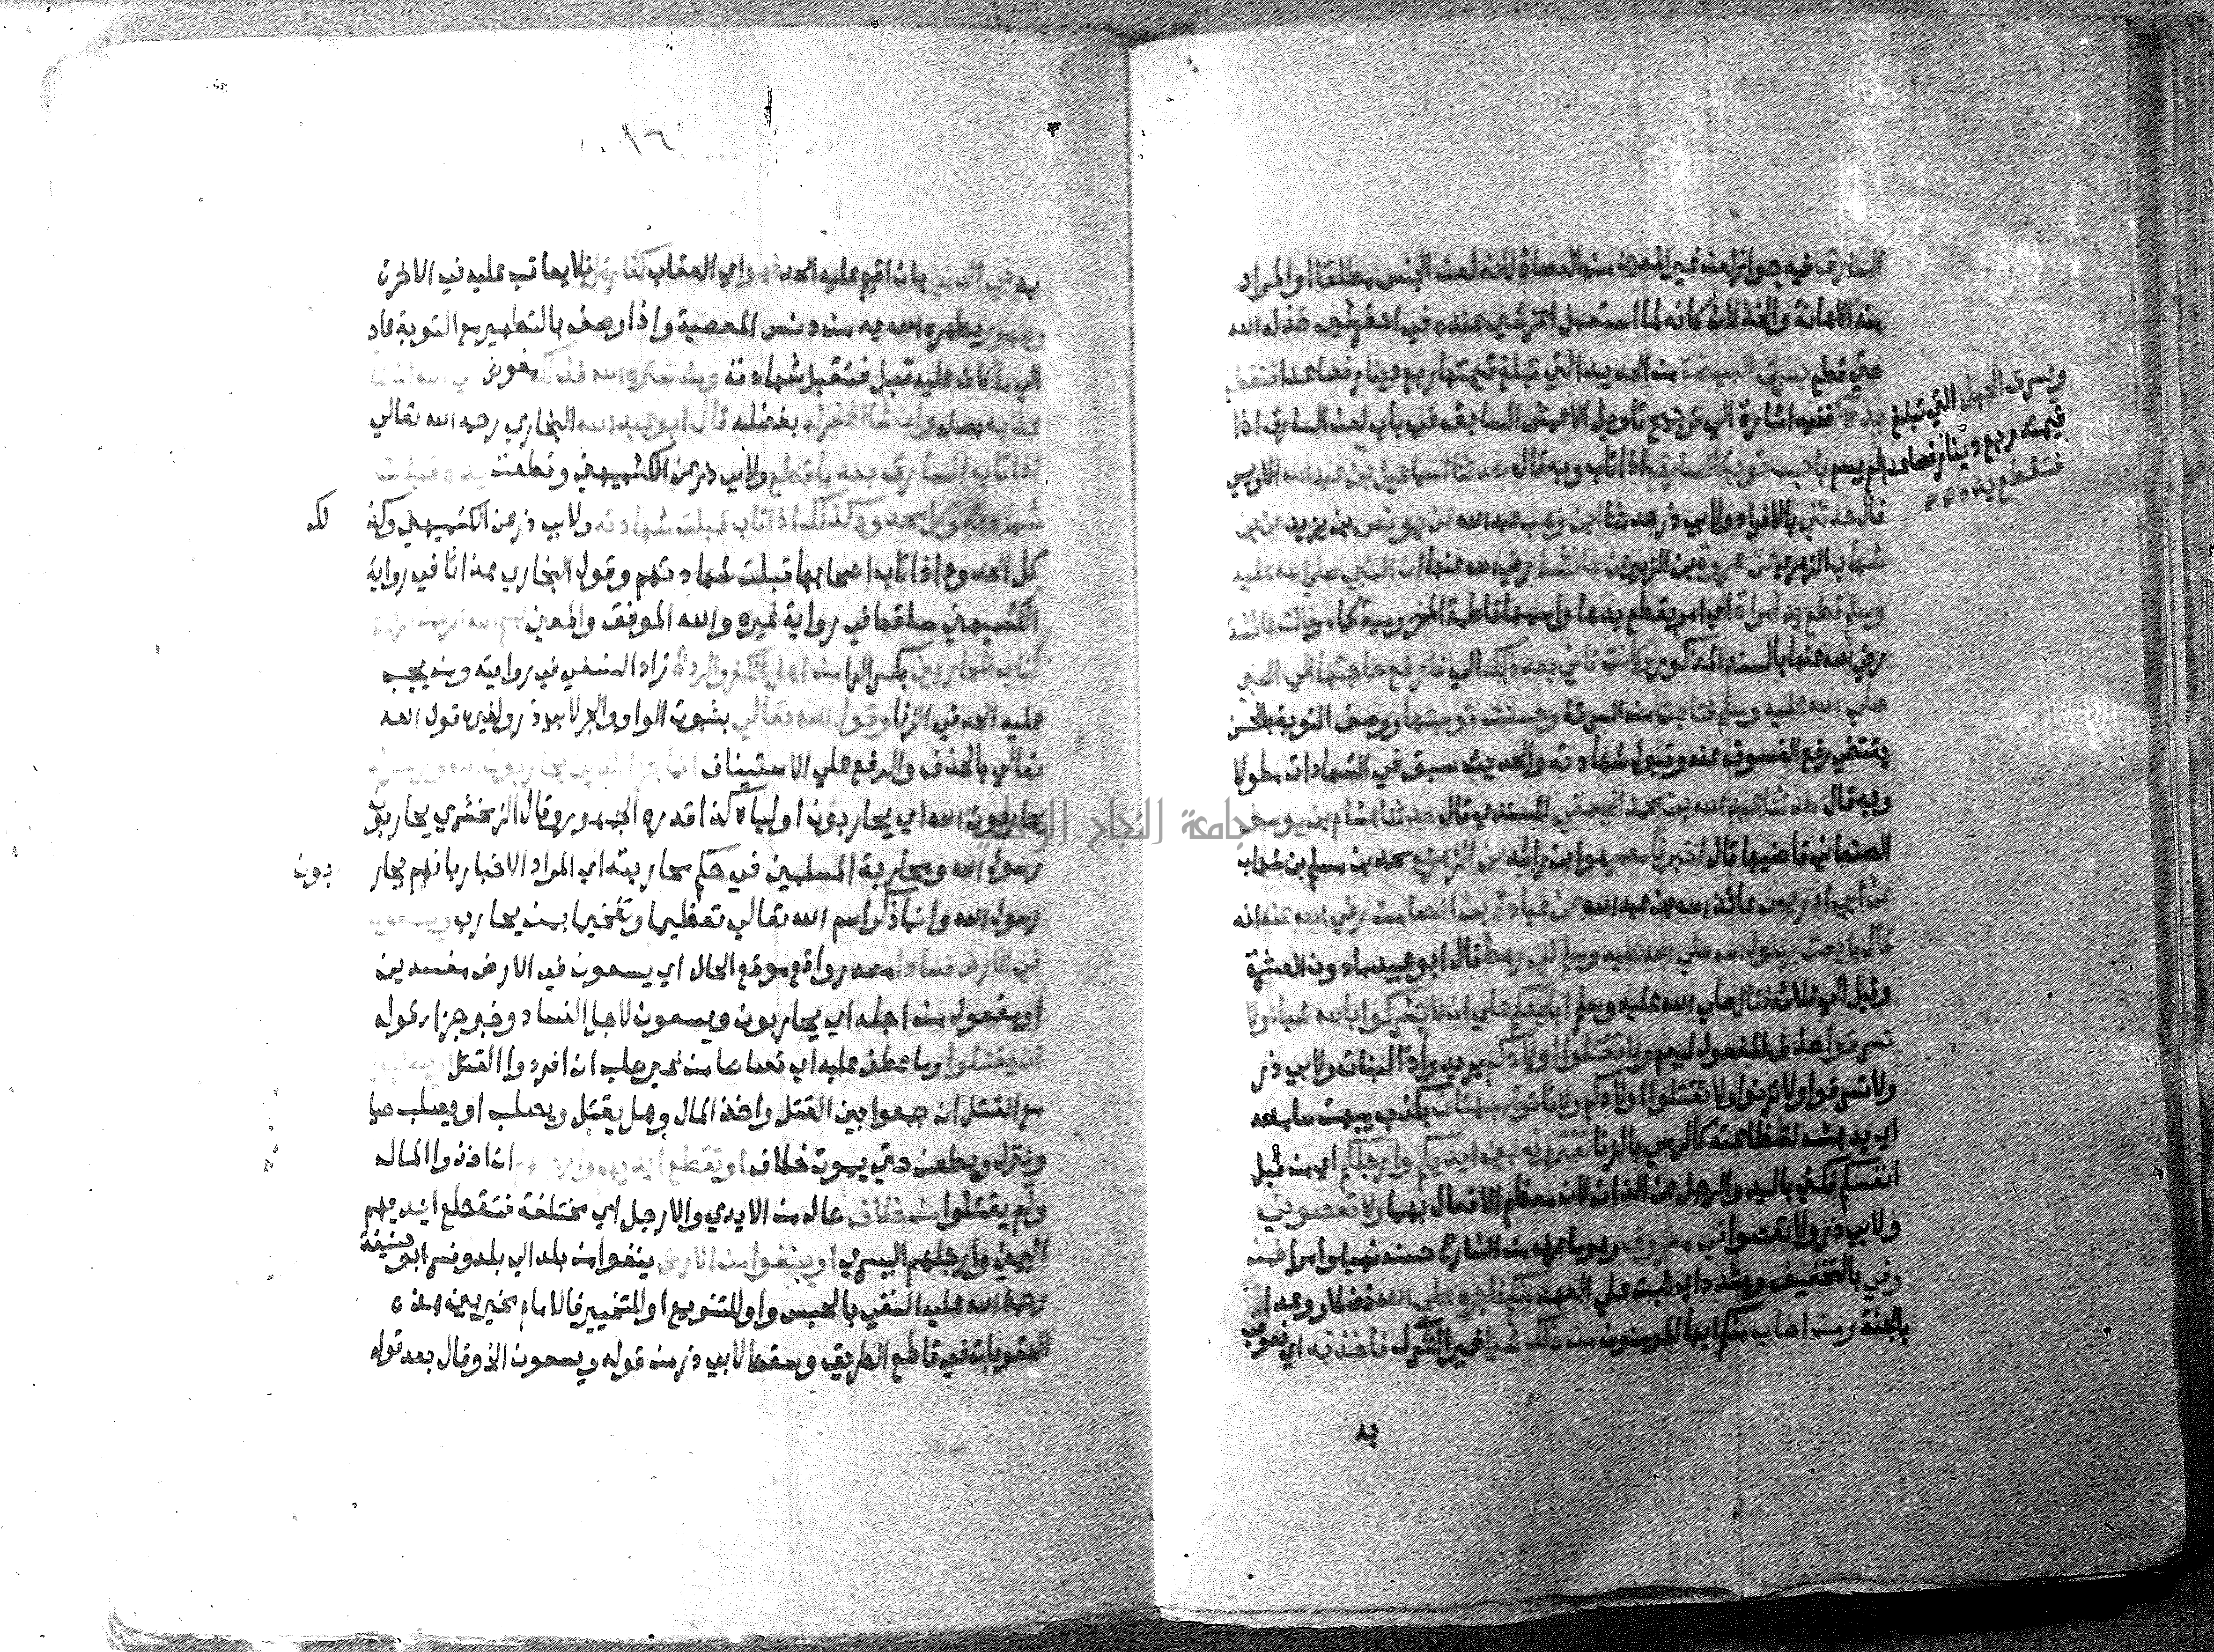 السارق فيه جواز لعن غير المعين من العصاة لانه لعن الجنس مطلقا او المراد
منه الاهانة والخذلان كانه لما استعمل اعز شي عنده في احقر شي خذله الله
حتي قطع يسرق البيضة من الحديد التي تبلغ قيمتها ربع دينار فصاعدا فتقطع
يده ففيه اشارة الي ترجيح تاويل الاعمش السابق في باب لعن السارق اذا
ويسرق الحبل التي تبلغ
قيمته ربع دينار فصاعدا
فتقطع يده
لم يسم باب توبة السارق اذا تاب وبه قال حدثنا اسماعيل بن عبد الله الاويسي
قال حدثني بالافراد ولابي ذر حدثنا ابن وهب عبد الله عن يونس بن يزيد عن بن
شهاب الزهري عن عروة بن الزبير عن عائشة رضي الله عنها ان النبي صلي الله عليه
وسلم قطع يد امراة اي امر بقطع يدها واسمها فاطمة المخزومية كما مر قالت عائشة
رضي الله عنها بالسند المذكور وكانت تاتي بعد ذلك الي فارفع حاجتها الي النبي
صلي الله عليه وسلم فتابت من السرقة وحسنت توبتها ووصف التوبة بالحسن
يقتضي رفع الفسوق عنه وقبول شهادته والحديث سبق في الشهادات مطولا
وبه قال حدثنا عبد الله بن محمد الجعفي المسندي قال حدثنا هشام بن يوسف
الصنعاني قاضيها قال اخبرنا معمر هو ابن راشد عن الزهري محمد بن مسلم بن شهاب
عن ابي ادريس عائذ الله بن عبد الله عن عبادة بن الصامت رضي الله عنه انه
قال بايعت رسول الله صلي الله عليه وسلم في رهط قال ابو عبيد ما دون العشرة
وقيل الي ثلاثة فقال صلي الله عليه وسلم ابايعكم علي ان لا تشركوا بالله شيا ولا
تسرقوا حذف المفعول ليعم ولا تقتلوا اولادكم يريد وأد البنات ولابي ذر
ولا تسرقوا ولا تزنوا ولا تقتلوا اولادكم ولا تاتوا ببهتان بكذب يبهت سامعه
اي يدهشه لفظاعته كالرمي بالزنا تفترونه بين ايديكم وارجلكم اي من قبل
انفسكم فكني باليد والرجل عن الذات لان معظم الافعال بهما ولا تعصوني
ولابي ذر ولا تعصوا في معروف وهو ما عرف من الشارع حسنه نهيا وامرا فمن
وفي بالتخفيف ويشدد اي ثبت علي العهد منكم فاجره علي الله فضلا ووعدا
بالجنة ومن اصاب منكم ايها المومنون من ذلك شيا غير الشرك فاخذ به اي فعوقب
به
١٦
به في الدنيا بان اقيم عليه الحد فهو اي العقاب كفارة له فلا يعاقب عليه في الاخرة
وطهور يطهره الله به من دنس المعصية واذا وصف بالتطهير مع التوبة عاد
الي ما كان عليه قبل فتقبل شهادته ومن ستره الله فذلك مفوض الي الله ان شا
عذبه بعدله وان شا غفر له بفضله قال ابو عبد الله البخاري رحمه الله تعالي
اذا تاب السارق بعد ما قطع ولابي ذر عن الكشميهني وقطعت يده قبلت
شهادته وكل محدود كذلك اذا تاب قبلت شهادته ولابي ذر عن الكشميهني وكذ لك
كل الحدود اذا تاب اصحابها قبلت شهادتهم وقول البخاري هذا ثا في رواية
الكشميهني ساقط في رواية غيره والله الموفق والمعين
كتاب المحاربين بكسر الرا من اهل الكفر والردة زاد النسفي في روايته ومن يجب
عليه الحد في الزنا وقول الله تعالي بثبوت الواو والجر لابي ذر ولغيره قول الله
تعالي بالحذف والرفع علي الاستيناف انما جزا الذين يحاربون الله ورسوله
يحاربون الله اي يحاربون اولياه كذا قدره الجمهور وقال الزمخشري يحاربون
رسول الله ومحاربة المسلمين في حكم محاربته اي المراد الاخبار بانهم يحار بون
رسول الله وانما ذكر اسم الله تعالي تعظيما وتفخيما بمن يحارب ويسعون
في الارض فسادا مصدر واقع موقع الحال اي يسعون في الارض مفسدين
او مفعول من اجله اي يحاربون ويسعون لاجل الفساد وخبر جزا قوله
ان يقتلوا وما عطف عليه اي قصاصا من غير صلب ان افردوا القتل او يصلبوا
مع القتل ان جمعوا بين القتل واخذ المال وهل يقتل ويصلب او يصلب حيا
وينزل ويطعن حتي يموت خلاف او تقطع ايديهم وارجلهم ان اخذوا المال
ولم يقتلوا من خلاف حال من الايدي والارجل اي مختلفة فتقطع ايديهم
اليمني وارجلهم اليسري او ينفوا من الارض ينفوا من بلد الي بلد وفسر ابو حنيفة
رحمة الله عليه النفي بالحبس واو للتنويع او للتخيير فالامام مخير بين هذه
العقوبات في قاطع الطريق وسقط لابي ذر من قوله ويسعون الخ وقال بعد قوله
جامعة النجاح الوطنية